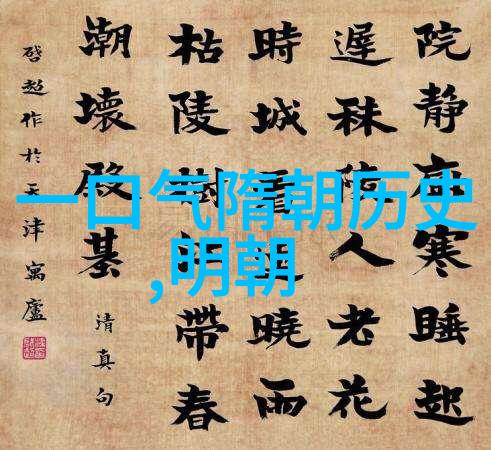 一口气隋朝历史
,明朝
院静寒睡起
遲秣陵人老花
時城曉雨
枯陵樹江帶春
潮壞殿基
清真句
啓超作於天津寓廬